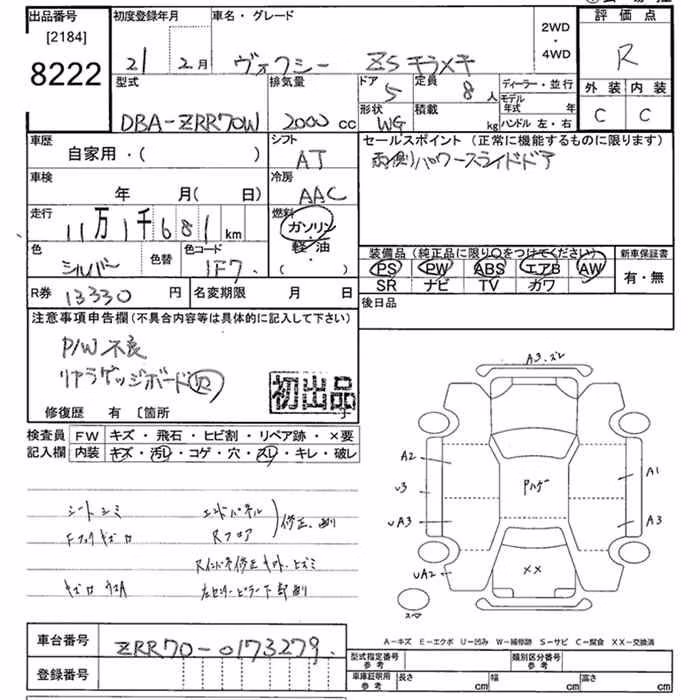 出品番号
[2184]
8222
初度登録年月
21 2月
車名・グレード
ヴォクシー ZSキラメキ
2WD
・
4WD
評価点
R
外装 内装
C C
型式
DBA-ZRR70W
排気量
2000 cc
ドア
5
定員
8人
形状
WG
積載
kg
ディーラー・並行
モデル年式 年
ハンドル 左・右
車歴
自家用・( )
シフト
AT
セールスポイント(正常に機能するものに限ります)
両側パワースライドドア
車検
年 月( 日)
冷房
AAC
走行
11万1千681 km
燃料
ガソリン
軽油
( )
色
シルバー
色替
色コード
1F7
装備品(純正品に限り○をつけてください)
PS PW ABS エアB AW
SR ナビ TV カワ
新車保証書
有・無
R券 13330 円
名変期限 月 日
後日品
注意事項申告欄(不具合内容等は具体的に記入して下さい)
P/W不良
リヤラゲッジボード欠
初出品
修復歴 有 〔箇所
検査員
記入欄
FW キズ・飛石・ヒビ割・リペア跡・×要
内装 キズ・汚レ・コゲ・穴・スレ・キレ・破レ
シートシミ
エンドパネル
Rフロア
修正
A3
A2
A1
A3
Pハゲ
UA3
UA2
××
スマ
A-キズ E-エクボ U-凹み W-補修跡 S-サビ C-腐食 XX-交換済
車台番号
ZRR70-0173279
登録番号
型式指定番号
参考
類別区分番号
参考
車庫証明用
参考
長さ cm
幅 cm
高さ cm